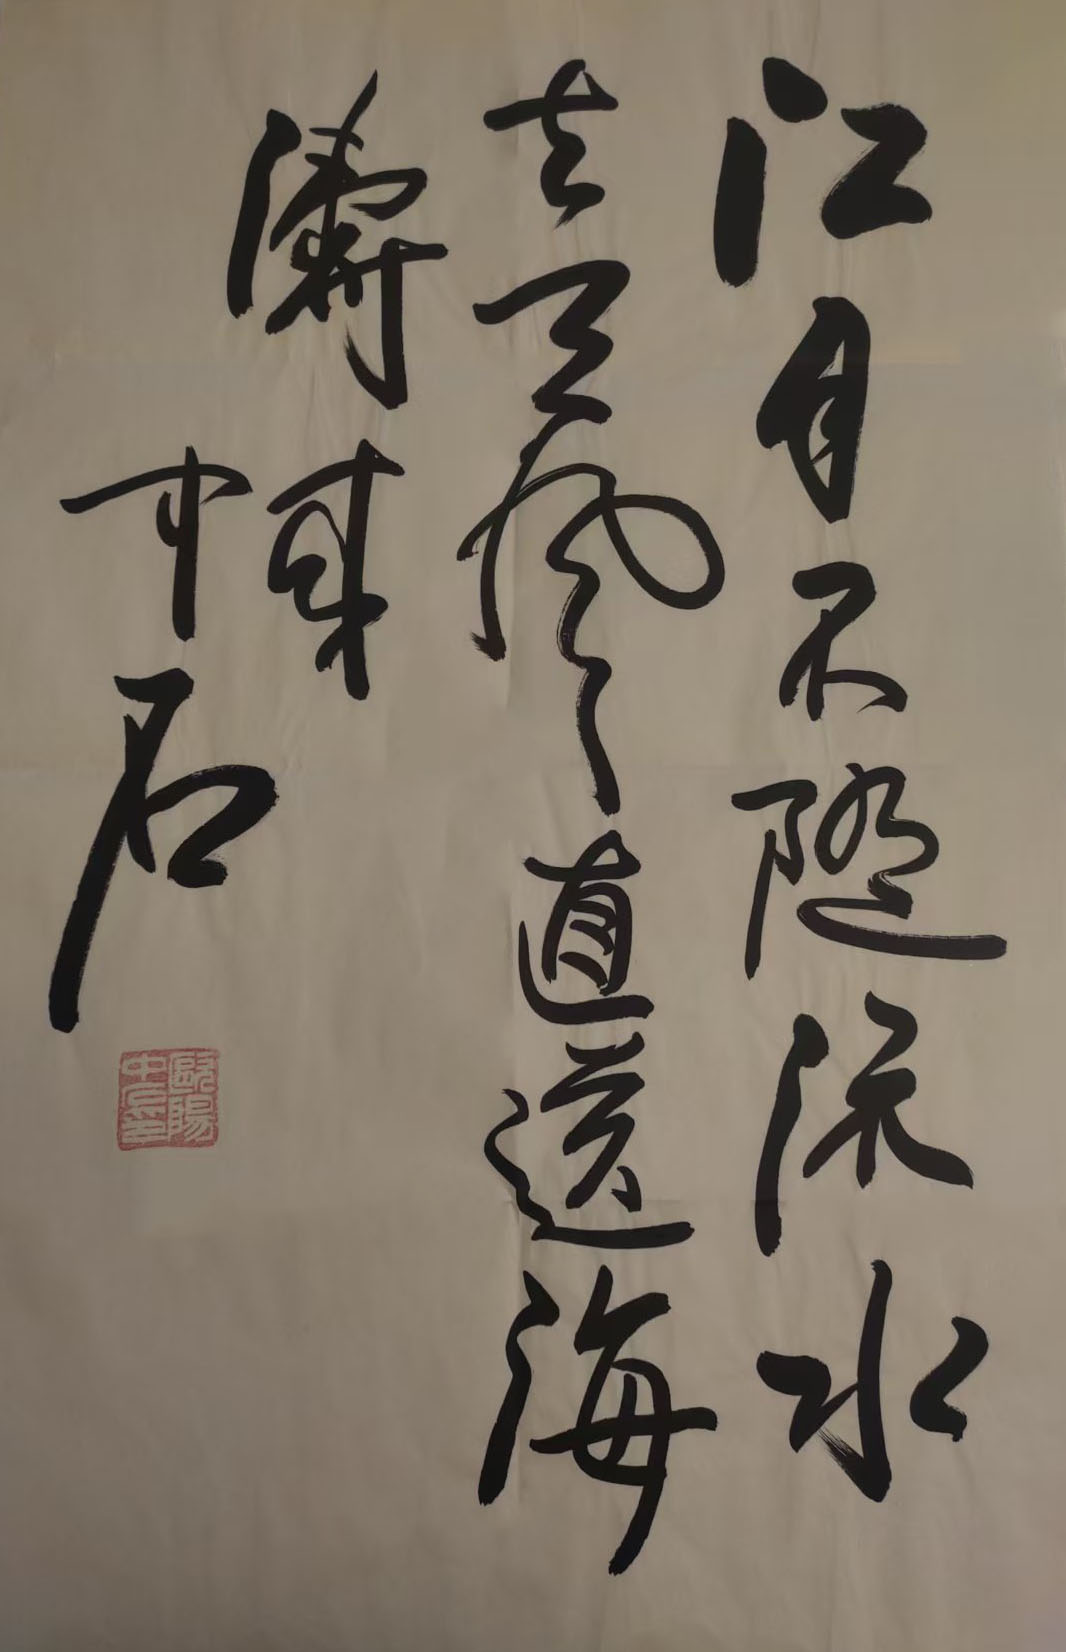 江月不隨流水
去天風直送海
濤來
中石
歐陽
中石